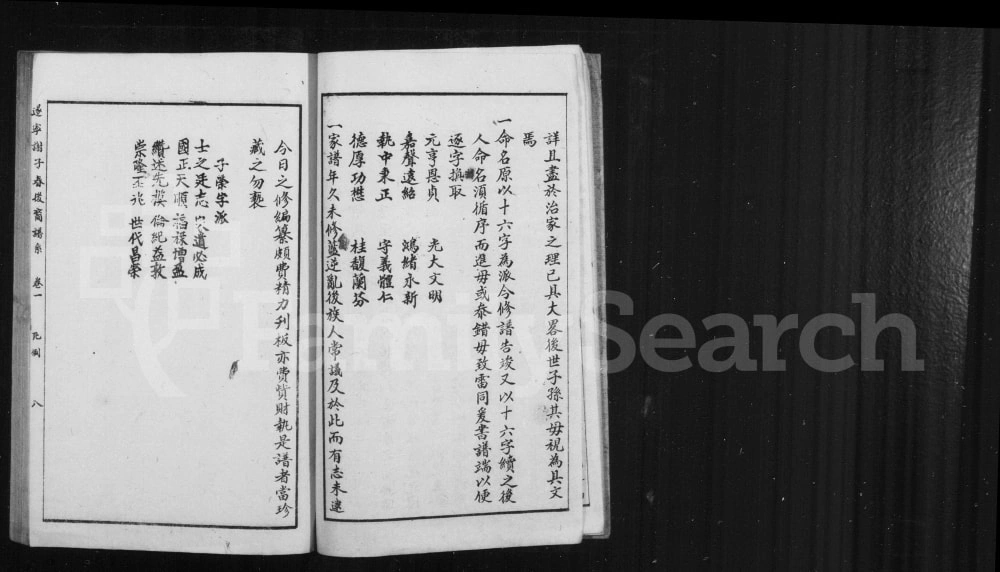 詳且盡於治家之理已具大畧後世子孫其毋視為具文
焉
一命名原以十六字為派今修譜告竣又以十六字續之後
人命名須循序而進毋或泰錯毋致雷同爰書譜端以便
逐字摭取
元亨恩貞 光大文明
嘉聲遠紹 鴻緒永新
執中秉正 守義體仁
德厚功懋 桂馥蘭芬
一家譜年久未修藍逆亂後族人常議及於此而有志未逮
今日之修編纂頗費精力刋板亦費貲財執是譜者當珍
藏之勿褻
子榮字派
士之廷志 以遺必成
國正天順 福祿增盈
纘述先模 倫紀益敦
崇隆丕兆 世代昌榮
遂寧謝子春後裔譜系 卷一 凡例 八
FamilySearch